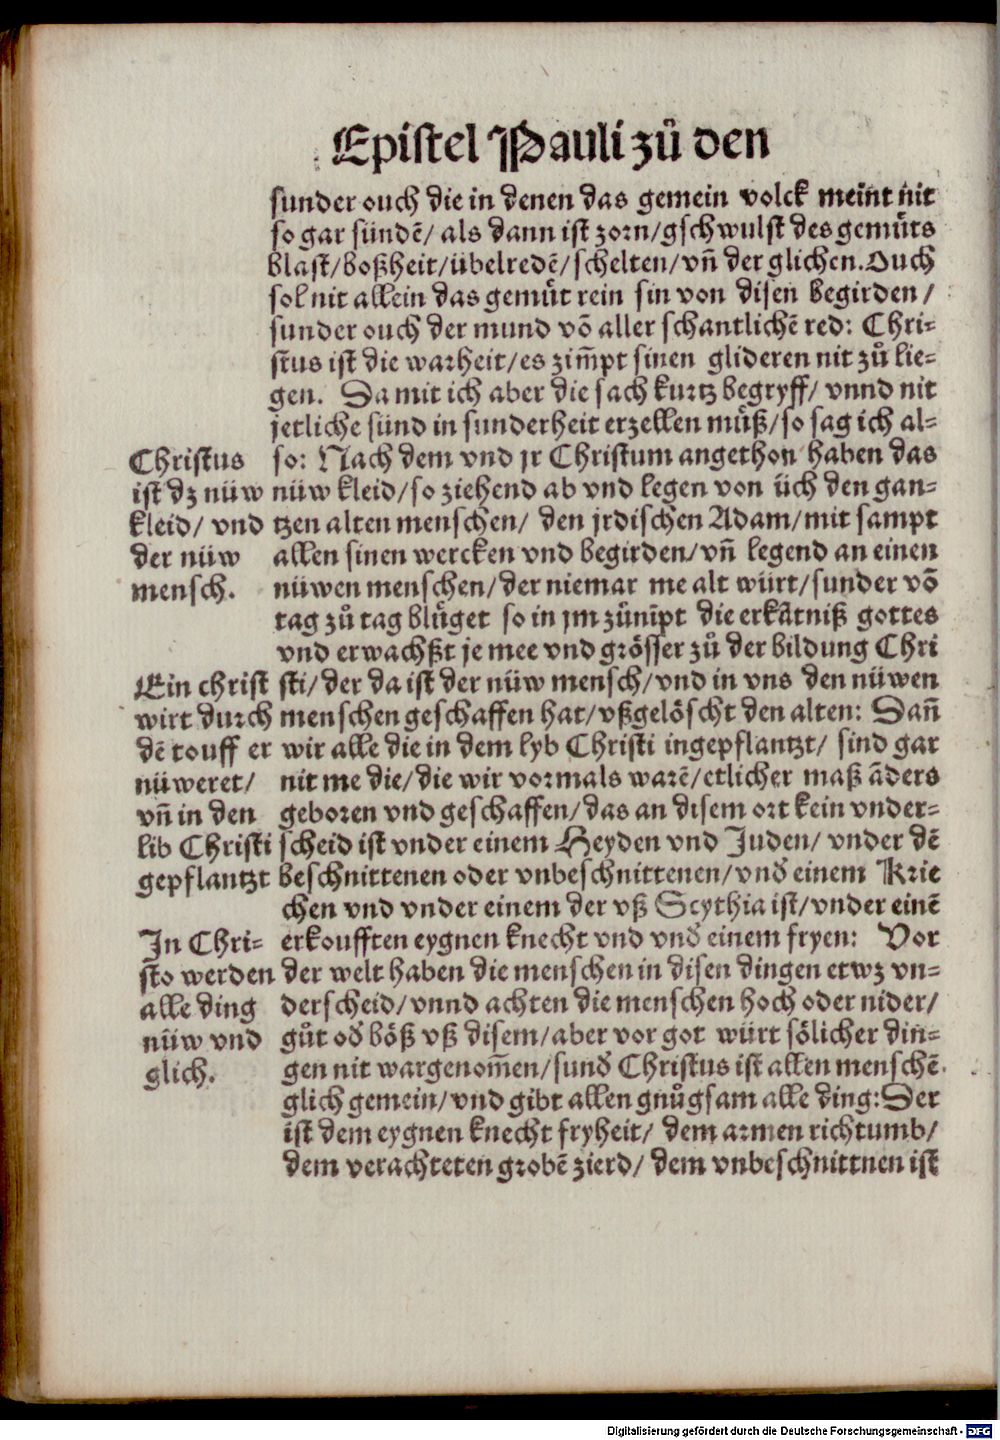 Epistel Pauli zů den
sunder ouch die in denen das gemein volck meint nit
so gar sündē/ als dann ist zorn/gschwulst des gemüts
blast/boßheit/übelredē/schelten/vn̄ der glichen. Ouch
sol nit allein das gemüt rein sin von disen begirden/
sunder ouch der mund vō aller schantlichē red: Chri-
stus ist die warheit/es zim̄pt sinen glideren nit zů lie-
gen. Da mit ich aber die sach kurtz begryff/ vnnd nit
jetliche sünd in sunderheit erzellen müß/so sag ich al-
so: Nach dem vnd jr Christum angethon haben das
nüw kleid/so ziehend ab vnd legen von üch den gan-
tzen alten menschen/ den jrdischen Adam/mit sampt
allen sinen wercken vnd begirden/vn̄ legend an einen
nüwen menschen/der niemar me alt würt/sunder vō
tag zů tag blüget so in jm zůnīpt die erkātniß gottes
vnd erwachßt je mee vnd grösser zů der bildung Chri
sti/ der da ist der nüw mensch/vnd in vns den nüwen
menschen geschaffen hat/vßgelöscht den alten: Dan̄
wir alle die in dem lyb Christi ingepflantzt/ sind gar
nit me die/die wir vormals warē/etlicher maß āders
geboren vnd geschaffen/das an disem ort kein vnder-
scheid ist vnder einem Heyden vnd Juden/ vnder dē
beschnittenen oder vnbeschnittenen/vnd̄ einem Krie
chen vnd vnder einem der vß Scythia ist/vnder einē
erkoufften eygnen knecht vnd vnd̄ einem fryen: Vor
der welt haben die menschen in disen dingen etwz vn-
derscheid/vnnd achten die menschen hoch oder nider/
gůt od̄ böß vß disem/aber vor got würt sölicher din-
gen nit wargenom̄en/sund̄ Christus ist allen menschē
glich gemein/vnd gibt allen gnůgsam alle ding:Der
ist dem eygnen knecht fryheit/ dem armen richtumb/
dem verachteten grobē zierd/ dem vnbeschnittnen ist
Christus
ist dz nüw
kleid/ vnd
der nüw
mensch.
Ein christ
wirt durch
dē touff er
nüweret/
vn̄ in den
lib Christi
gepflantzt
In Chri-
sto werden
alle ding
nüw vnd
glich.
Digitalisierung gefördert durch die Deutsche Forschungsgemeinschaft - DFG